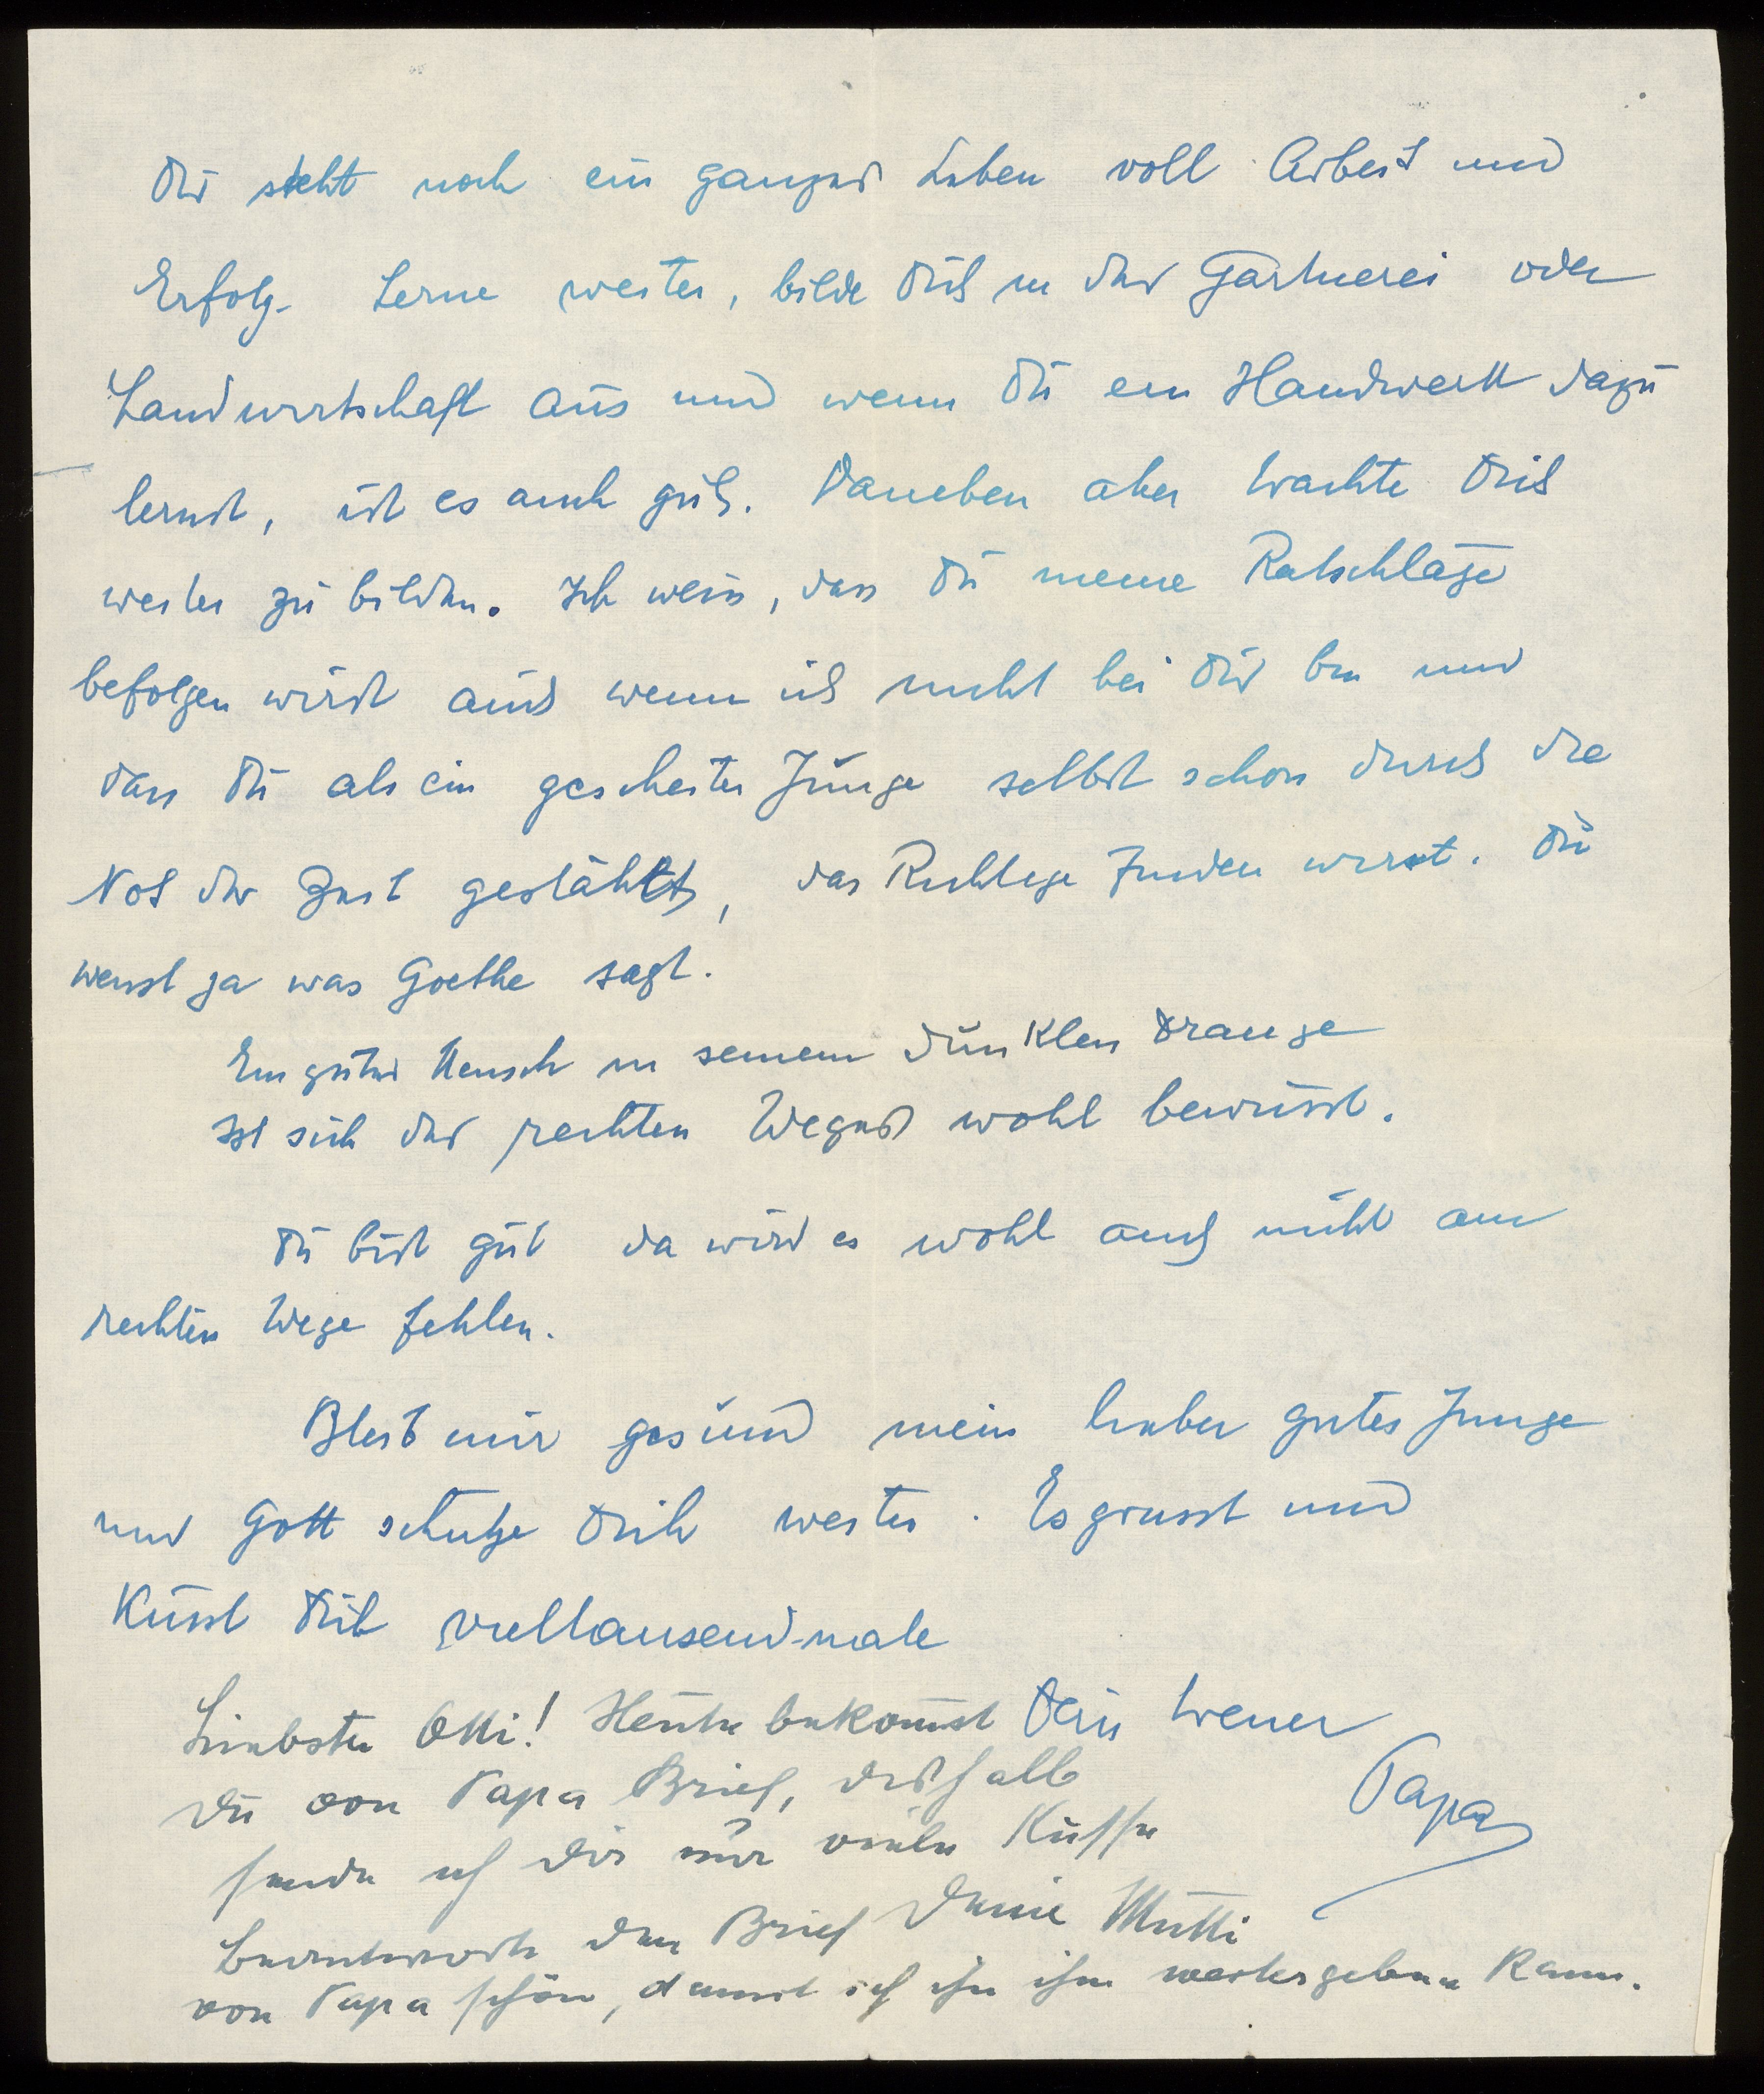 Dir steht noch ein ganzes Leben voll Arbeit und
Erfolg. Lerne weiter, bilde Dich in der Gärtnerei oder
Landwirtschaft aus und wenn Du ein Handwerk dazu
lernst, ist es auch gut. Daneben aber trachte Dich
weiter zu bilden. Ich weiss, dass Du meine Ratschläge
befolgen wirst auch wenn ich nicht bei Dir bin und
dass Du als ein gescheiter Junge selbst schon durch die
Not der Zeit gestählt, das Richtige finden wirst. Du
weisst ja was Goethe sagt.
Ein guter Mensch in seinem dunklen Drange
Ist sich des rechten Weges wohl bewusst.
Du bist gut da wird es wohl auch nicht am
rechten Wege fehlen.
Bleib mir gesund mein lieber guter Junge
und Gott schütze Dich weiter. Es grüsst und
Küsst Dich vieltausendmale
Dein treuer
Papa
Liebster Otti! Heute bekommst
Du von Papa Brief, deshalb
sende ich Dir nur viele Küsse
Deine Mutti
Beantworte den Brief
von Papa schön, damit ich ihn ihm weitergeben kann.